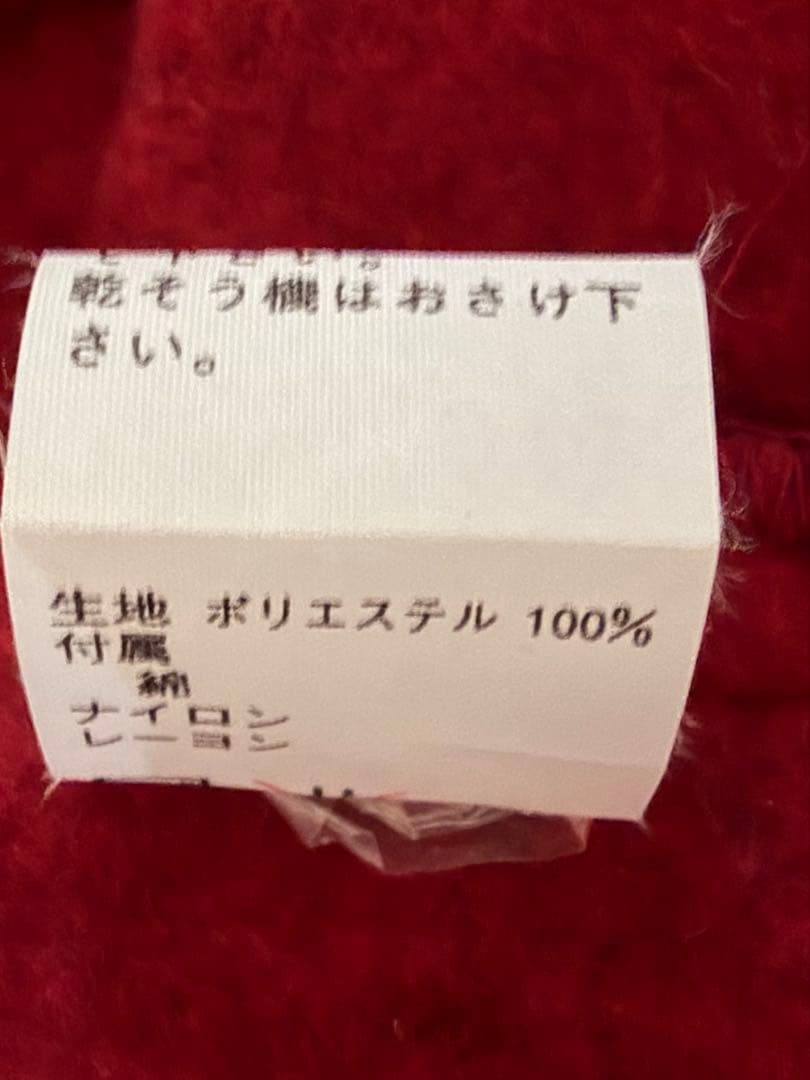 乾そう機はおさけ下
さい。
生地 ポリエステル 100%
付属
綿
ナイロン
レーヨン